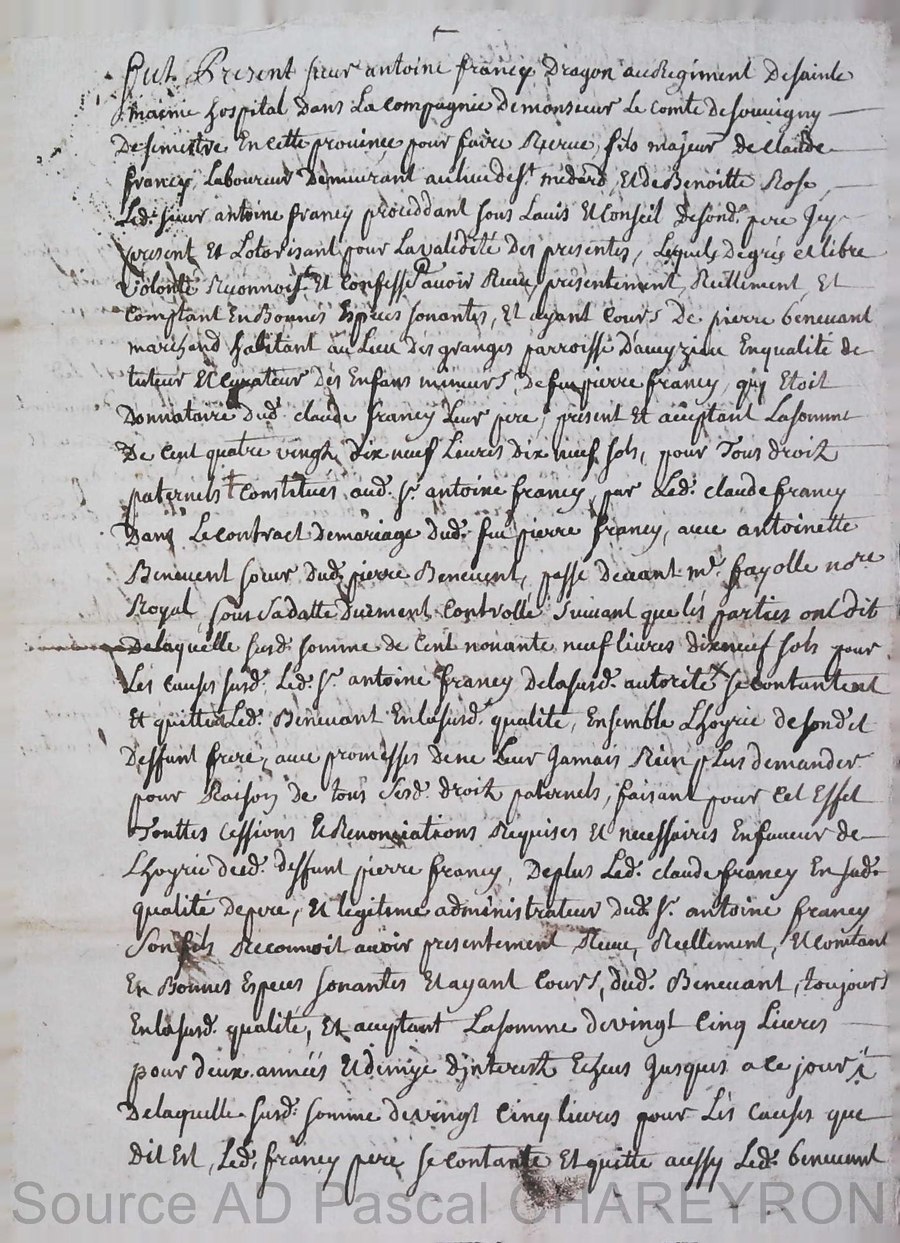 fut Present sieur antoine francy Dragon au Regiment De sainte
mairie hospital Dans La compagnie De monsieur Le comte de souvigny
De semestre En cette province pour faire Recrue, fils majeur de claude
francy, Laboureur Demeurant au lieu de st. medard, Et de Benoitte Rose,
Led. sieur antoine francy proceddant sous Lauis Et Conseil de sond. pere Jcy
present Et Lotorisant pour La validité Des presentes, Lequels de grés et libre
volonté Reconnoist Et Confesse avoir Recu, présentement, Reellement, Et
comptant En Bonnes Especes sonantes, Et ayant Cours De pierre benevant
marchand habitant au Lieu des granges parroisse D'aveyzieu En qualité de
tuteur Et Curateur Des Enfans mineurs, de feu pierre francy, quy Etoit
Donnataire dud. claude francy Leur pere, present Et aceptant La somme
De Cent quatre vingt Dix neuf Livres Dix neuf sols, pour Tous droit
paternels + Constitués aud. sr. antoine francy, par Led. claude francy
Dans Le contract de mariage dud. feu pierre francy, avec antoinette
Benevent sœur dud. pierre Benevent, passe devant me. fayolle nore
Royal, sous sa datte Duement Controllé suivant que les parties ont dit
De laquelle susd. somme de Cent nonante neuf livres dix neuf sols pour
Les causes susd. Led. sr. antoine francy de la susd. autorité se contantent
Et quitte Led. Benevant En la susd. qualité, Ensemble Lhoyrie de sondit
Deffunt frere, avec promesses de ne Leur Jamais Rien plus demander
pour Raison de tous susd. droit paternels, faisant pour Cet Effet
Touttes Cessions Et Renonciations Requises Et necessaires En faveur de
Lhoyrie dud. deffunt pierre francy, De plus Led. claude francy En sad.
qualité de pere, Et legitime administrateur dud. sr. antoine francy
son fils Reconnoit avoir presentement Recu, Reellement, Et Comtant
En Bonnes Especes sonantes Et ayant Cours, dud. Benevant, toujours
En la susd. qualité, Et aceptant La somme de vingt Cinq Livres
pour deux années Et dimye d'jnterest Echeus Jusques a ce jour
De laquelle susd. somme de vingt Cinq livres pour Les Causes que
Dit Est, Led. francy pere, se contante Et quitte aussy Led. benevent
Source AD Pascal CHAREYRON